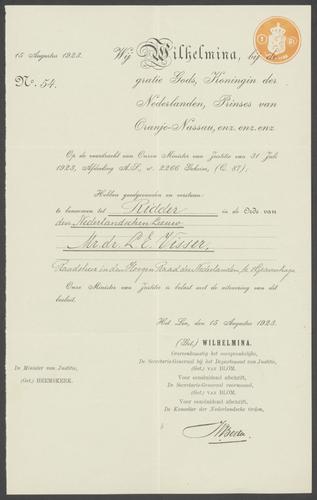 15 Augustus 1923.
No. 54.
Wij Wilhelmina, bij de
gratie Gods, Koningin der
Nederlanden, Prinses van
Oranje-Nassau, enz. enz. enz.
Op de voordracht van Onzen Minister van Justitie van 31 Juli
1923, Afdeeling A.S., no. 2266 Geheim, (C. 87);
Hebben goedgevonden en verstaan:
te benoemen tot Ridder in de Orde van
den Nederlandschen Leeuw
Mr. dr. L. E. Visser,
Raadsheer in den Hoogen Raad der Nederlanden te 's Gravenhage
Onze Minister van Justitie is belast met de uitvoering van dit
besluit.
Het Loo, den 15 Augustus 1923.
(Get.) WILHELMINA.
De Minister van Justitie,
(Get.) HEEMSKERK.
Overeenkomstig het oorspronkelijke,
De Secretaris-Generaal bij het Departement van Justitie,
(Get.) VAN BLOM.
Voor eensluidend afschrift,
De Secretaris-Generaal voornoemd,
(Get.) VAN BLOM.
Voor eensluidend afschrift,
De Kanselier der Nederlandsche Orden,